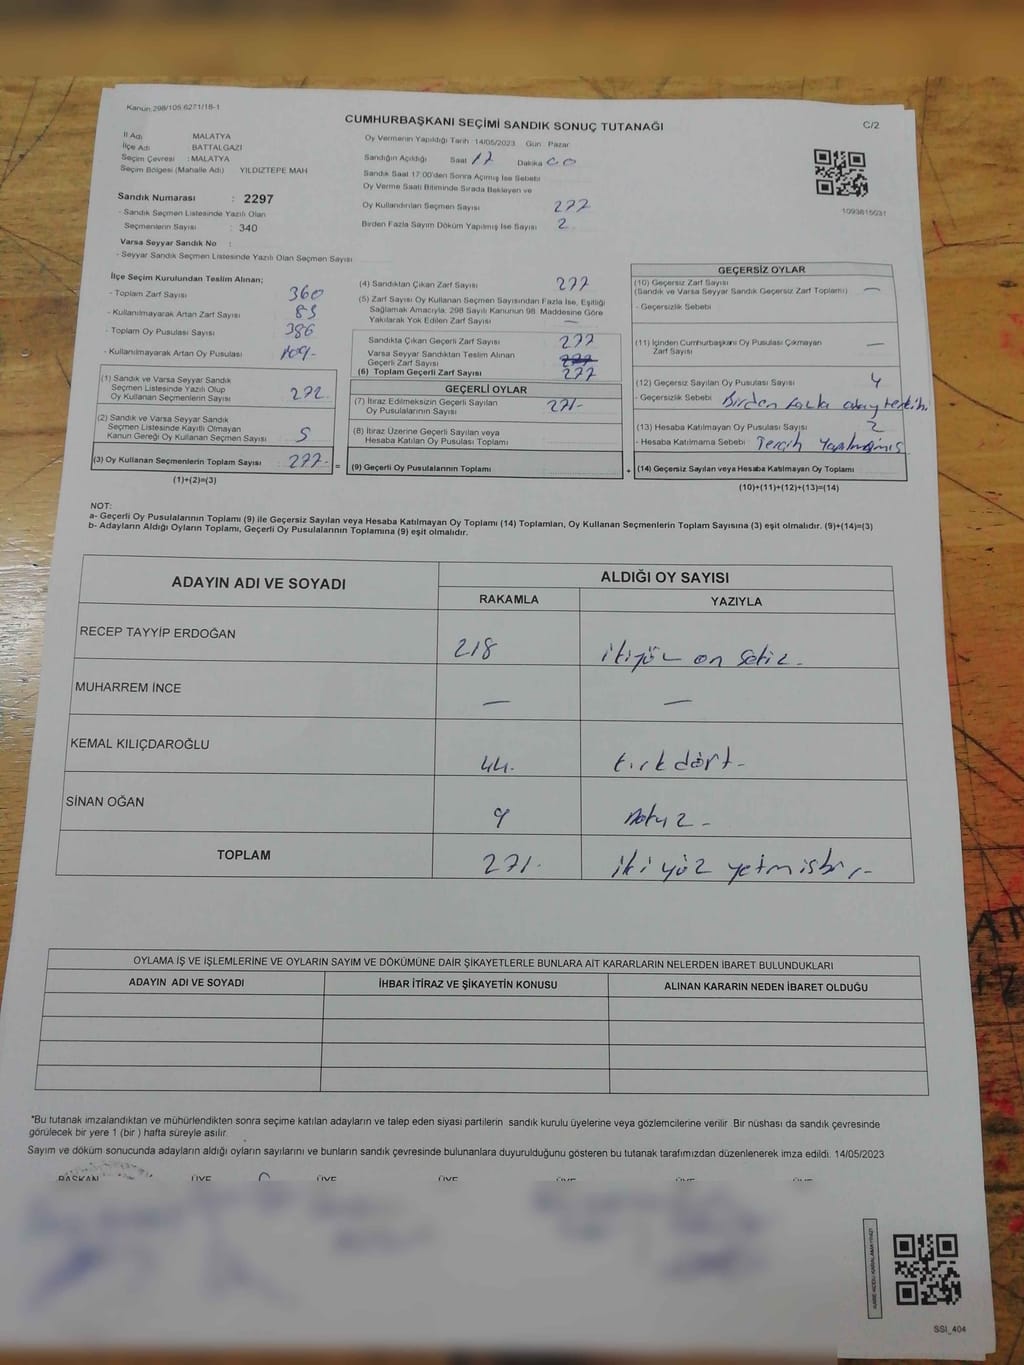 Kanun 298/105 6271/18-1
CUMHURBAŞKANI SEÇİMİ SANDIK SONUÇ TUTANAĞI
C/2
İl Adı MALATYA
İlçe Adı BATTALGAZİ
Seçim Çevresi : MALATYA
Seçim Bölgesi (Mahalle Adı) YILDIZTEPE MAH
Sandık Numarası : 2297
- Sandık Seçmen Listesinde Yazılı Olan
Seçmenlerin Sayısı : 340
Varsa Seyyar Sandık No :
- Seyyar Sandık Seçmen Listesinde Yazılı Olan Seçmen Sayısı
Oy Vermenin Yapıldığı Tarih 14/05/2023 Gün Pazar
Sandığın Açıldığı Saat 17 Dakika 00
Sandık Saat 17:00'den Sonra Açımış İse Sebebi
Oy Verme Saati Bitiminde Sırada Bekleyen ve
Oy Kullandırılan Seçmen Sayısı 277
Birden Fazla Sayım Döküm Yapılmış İse Sayısı 2
1093815031
İlçe Seçim Kurulundan Teslim Alınan;
- Toplam Zarf Sayısı 360
- Kullanılmayarak Artan Zarf Sayısı 83
- Toplam Oy Pusulası Sayısı 386
- Kullanılmayarak Artan Oy Pusulası 109-
(1) Sandık ve Varsa Seyyar Sandık
Seçmen Listesinde Yazılı Olup
Oy Kullanan Seçmenlerin Sayısı 272
(2) Sandık ve Varsa Seyyar Sandık
Seçmen Listesinde Kayıtlı Olmayan
Kanun Gereği Oy Kullanan Seçmen Sayısı 5
(3) Oy Kullanan Seçmenlerin Toplam Sayısı 277-
(1)+(2)=(3)
(4) Sandıktan Çıkan Zarf Sayısı 277
(5) Zarf Sayısı Oy Kullanan Seçmen Sayısından Fazla İse, Eşitliği
Sağlamak Amacıyla; 298 Sayılı Kanunun 98. Maddesine Göre
Yakılarak Yok Edilen Zarf Sayısı —
Sandıkta Çıkan Geçerli Zarf Sayısı 277
Varsa Seyyar Sandıktan Teslim Alınan
Geçerli Zarf Sayısı
(6) Toplam Geçerli Zarf Sayısı 277
GEÇERLİ OYLAR
(7) İtiraz Edilmeksizin Geçerli Sayılan
Oy Pusulalarının Sayısı 271-
(8) İtiraz Üzerine Geçerli Sayılan veya
Hesaba Katılan Oy Pusulası Toplamı
= (9) Geçerli Oy Pusulalarının Toplamı
GEÇERSİZ OYLAR
(10) Geçersiz Zarf Sayısı
(Sandık ve Varsa Seyyar Sandık Geçersiz Zarf Toplamı) —
- Geçersizlik Sebebi
(11) İçinden Cumhurbaşkanı Oy Pusulası Çıkmayan
Zarf Sayısı —
(12) Geçersiz Sayılan Oy Pusulası Sayısı 4
- Geçersizlik Sebebi Birden fazla aday tercih
(13) Hesaba Katılmayan Oy Pusulası Sayısı 2
- Hesaba Katılmama Sebebi Tercih Yapılmamış
+ (14) Geçersiz Sayılan veya Hesaba Katılmayan Oy Toplamı
(10)+(11)+(12)+(13)=(14)
NOT:
a- Geçerli Oy Pusulalarının Toplamı (9) ile Geçersiz Sayılan veya Hesaba Katılmayan Oy Toplamı (14) Toplamları, Oy Kullanan Seçmenlerin Toplam Sayısına (3) eşit olmalıdır. (9)+(14)=(3)
b- Adayların Aldığı Oyların Toplamı, Geçerli Oy Pusulalarının Toplamına (9) eşit olmalıdır.
ADAYIN ADI VE SOYADI
ALDIĞI OY SAYISI
RAKAMLA YAZIYLA
RECEP TAYYİP ERDOĞAN 218 ikiyüz on sekiz -
MUHARREM İNCE — —
KEMAL KILIÇDAROĞLU 44. kırkdört -
SİNAN OĞAN 9 dokuz -
TOPLAM 271. iki yüz yetmişbir -
OYLAMA İŞ VE İŞLEMLERİNE VE OYLARIN SAYIM VE DÖKÜMÜNE DAİR ŞİKAYETLERLE BUNLARA AİT KARARLARIN NELERDEN İBARET BULUNDUKLARI
ADAYIN ADI VE SOYADI İHBAR İTİRAZ VE ŞİKAYETİN KONUSU ALINAN KARARIN NEDEN İBARET OLDUĞU
*Bu tutanak imzalandıktan ve mühürlendikten sonra seçime katılan adayların ve talep eden siyasi partilerin sandık kurulu üyelerine veya gözlemcilerine verilir. Bir nüshası da sandık çevresinde
görülecek bir yere 1 (bir ) hafta süreyle asılır.
Sayım ve döküm sonucunda adayların aldığı oyların sayılarını ve bunların sandık çevresinde bulunanlara duyurulduğunu gösteren bu tutanak tarafımızdan düzenlenerek imza edildi. 14/05/2023
BAŞKAN ÜYE ÜYE ÜYE ÜYE ÜYE ÜYE
KARE KODU KARALAMAYINIZ!
SSI_404